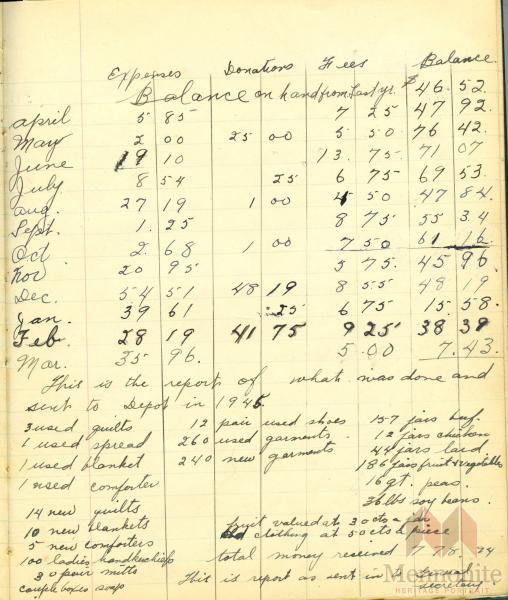 Expenses Donations Fees Balance
Balance on hand from last yr. $46.52
april 5 85 7 25 47 92
May 2 00 25 00 5 50 76 42
June 19 10 13. 75 71 07
July 8 54 25 6 75 69 53
aug. 27 19 1 00 4 50 47 84
Sept. 1. 25 8 75 55 34
Oct 2. 68 1 00 7 50 61 16
Nov 20 95 5 75. 45 96
Dec. 54 51 48 19 8 55 48 19
Jan. 39 61 25 6 75 15. 58.
Feb. 28 19 41 75 9 25 38 39
Mar. 35 96. 5. 00 7. 43.
This is the report of what was done and
sent to Depot in 1945.
3 used quilts 12 pair used shoes 157 jars beef.
1 used spread 260 used garments. 12 jars chicken
1 used blanket 240 new garments 44 jars lard
186 jars fruit & vegetables
1 used comforter 16 qt. peas.
36 lbs soy beans.
14 new quilts
10 new blankets fruit valued at 30 cts a jar
5 new comforters clothing at 50 cts a piece
100 ladies handkerchiefs total money received 778.24
30 pair mitts This is report as sent in to
couple boxes soap secretary.
Mennonite
HERITAGE PORTRAIT